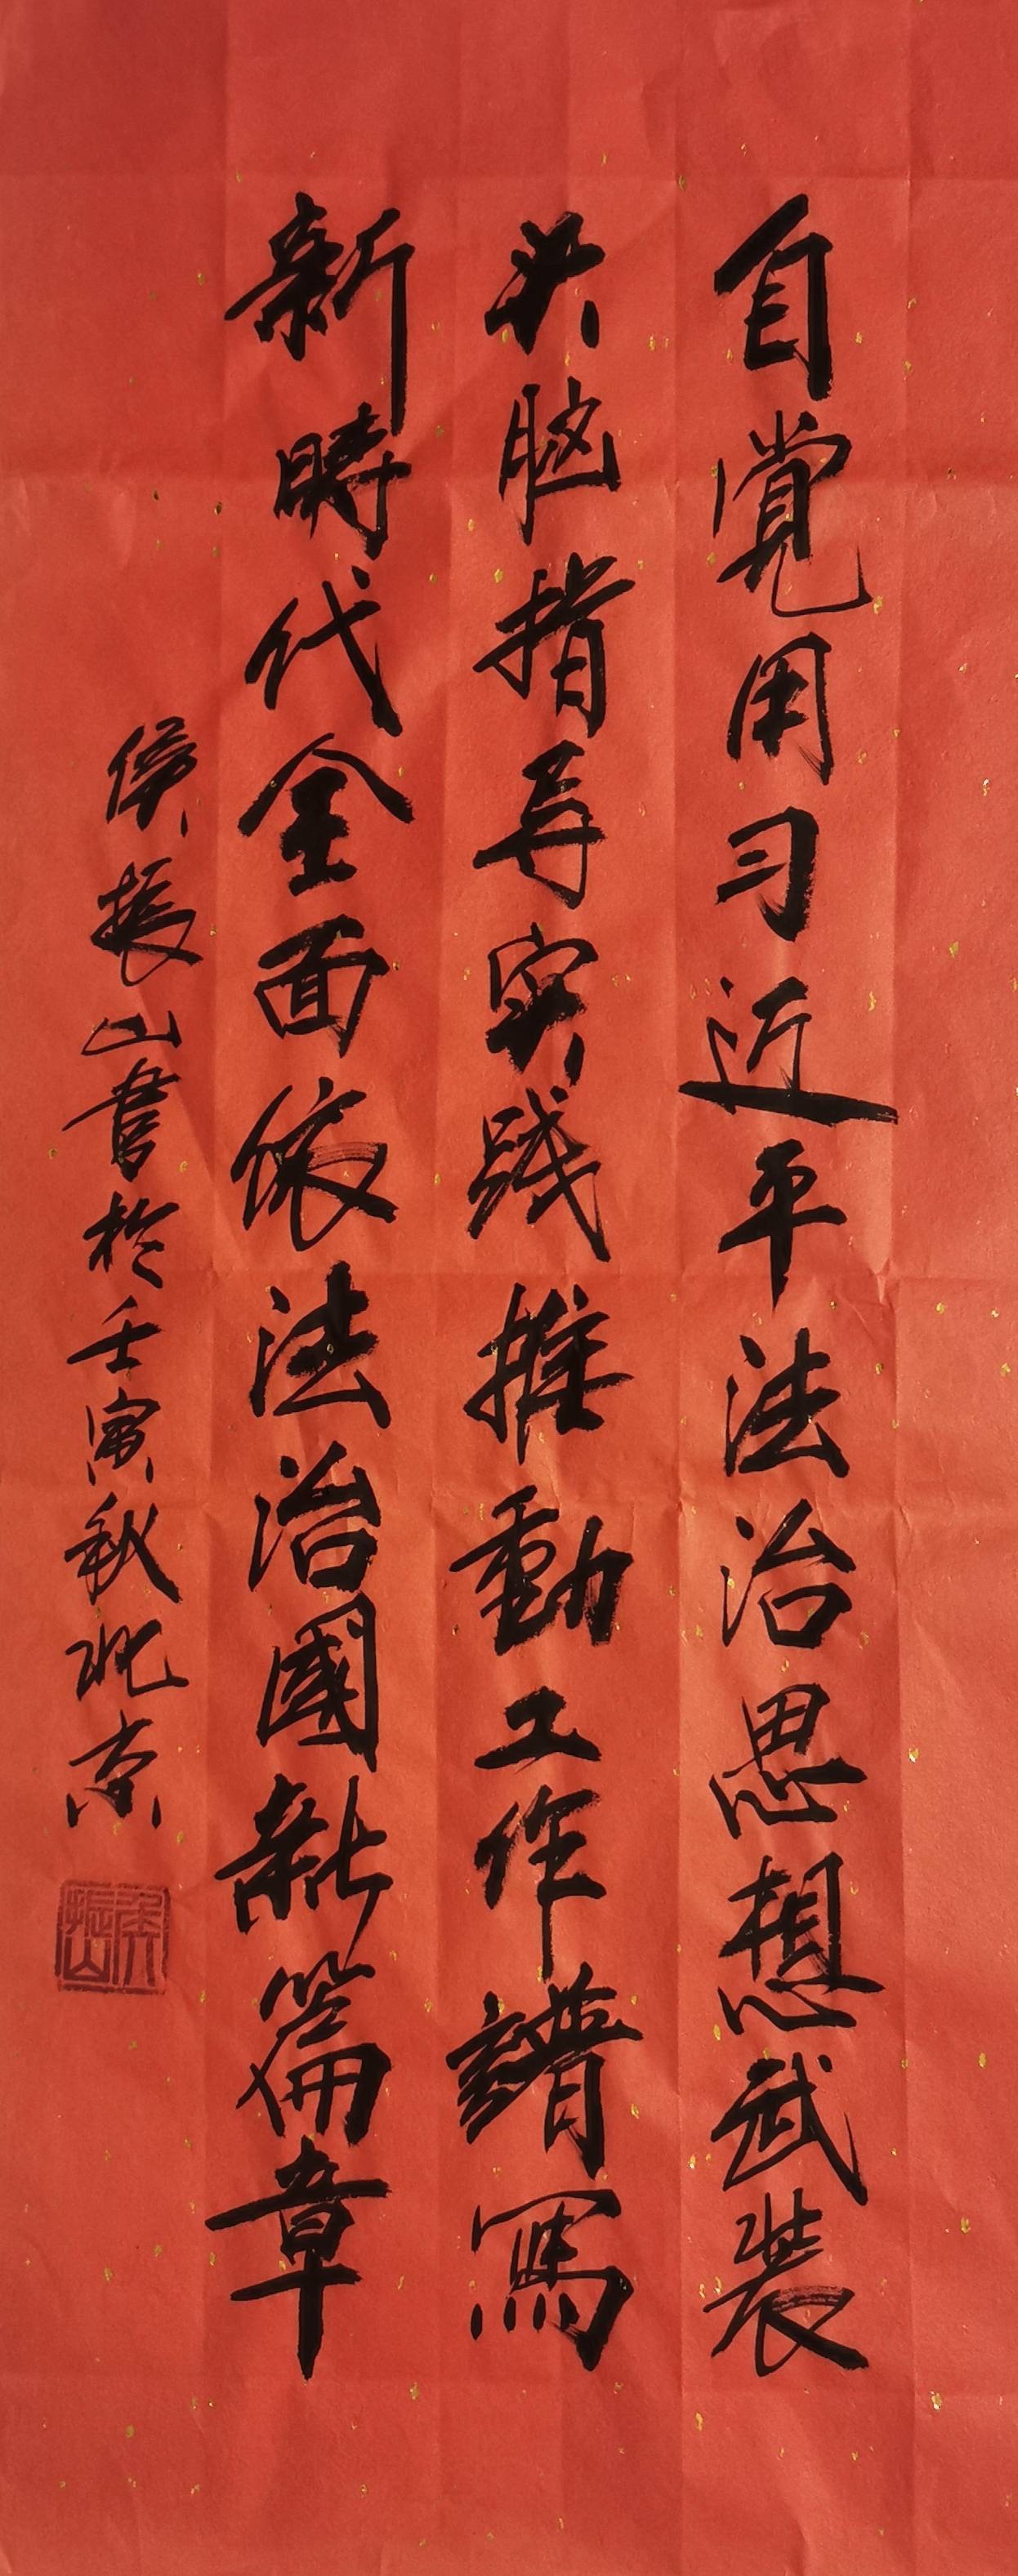 自覚用习近平法治思想武装
头脑指导实践推動工作譜寫
新時代全面依法治國新篇章
侯振山書於壬寅秋北京
侯振山